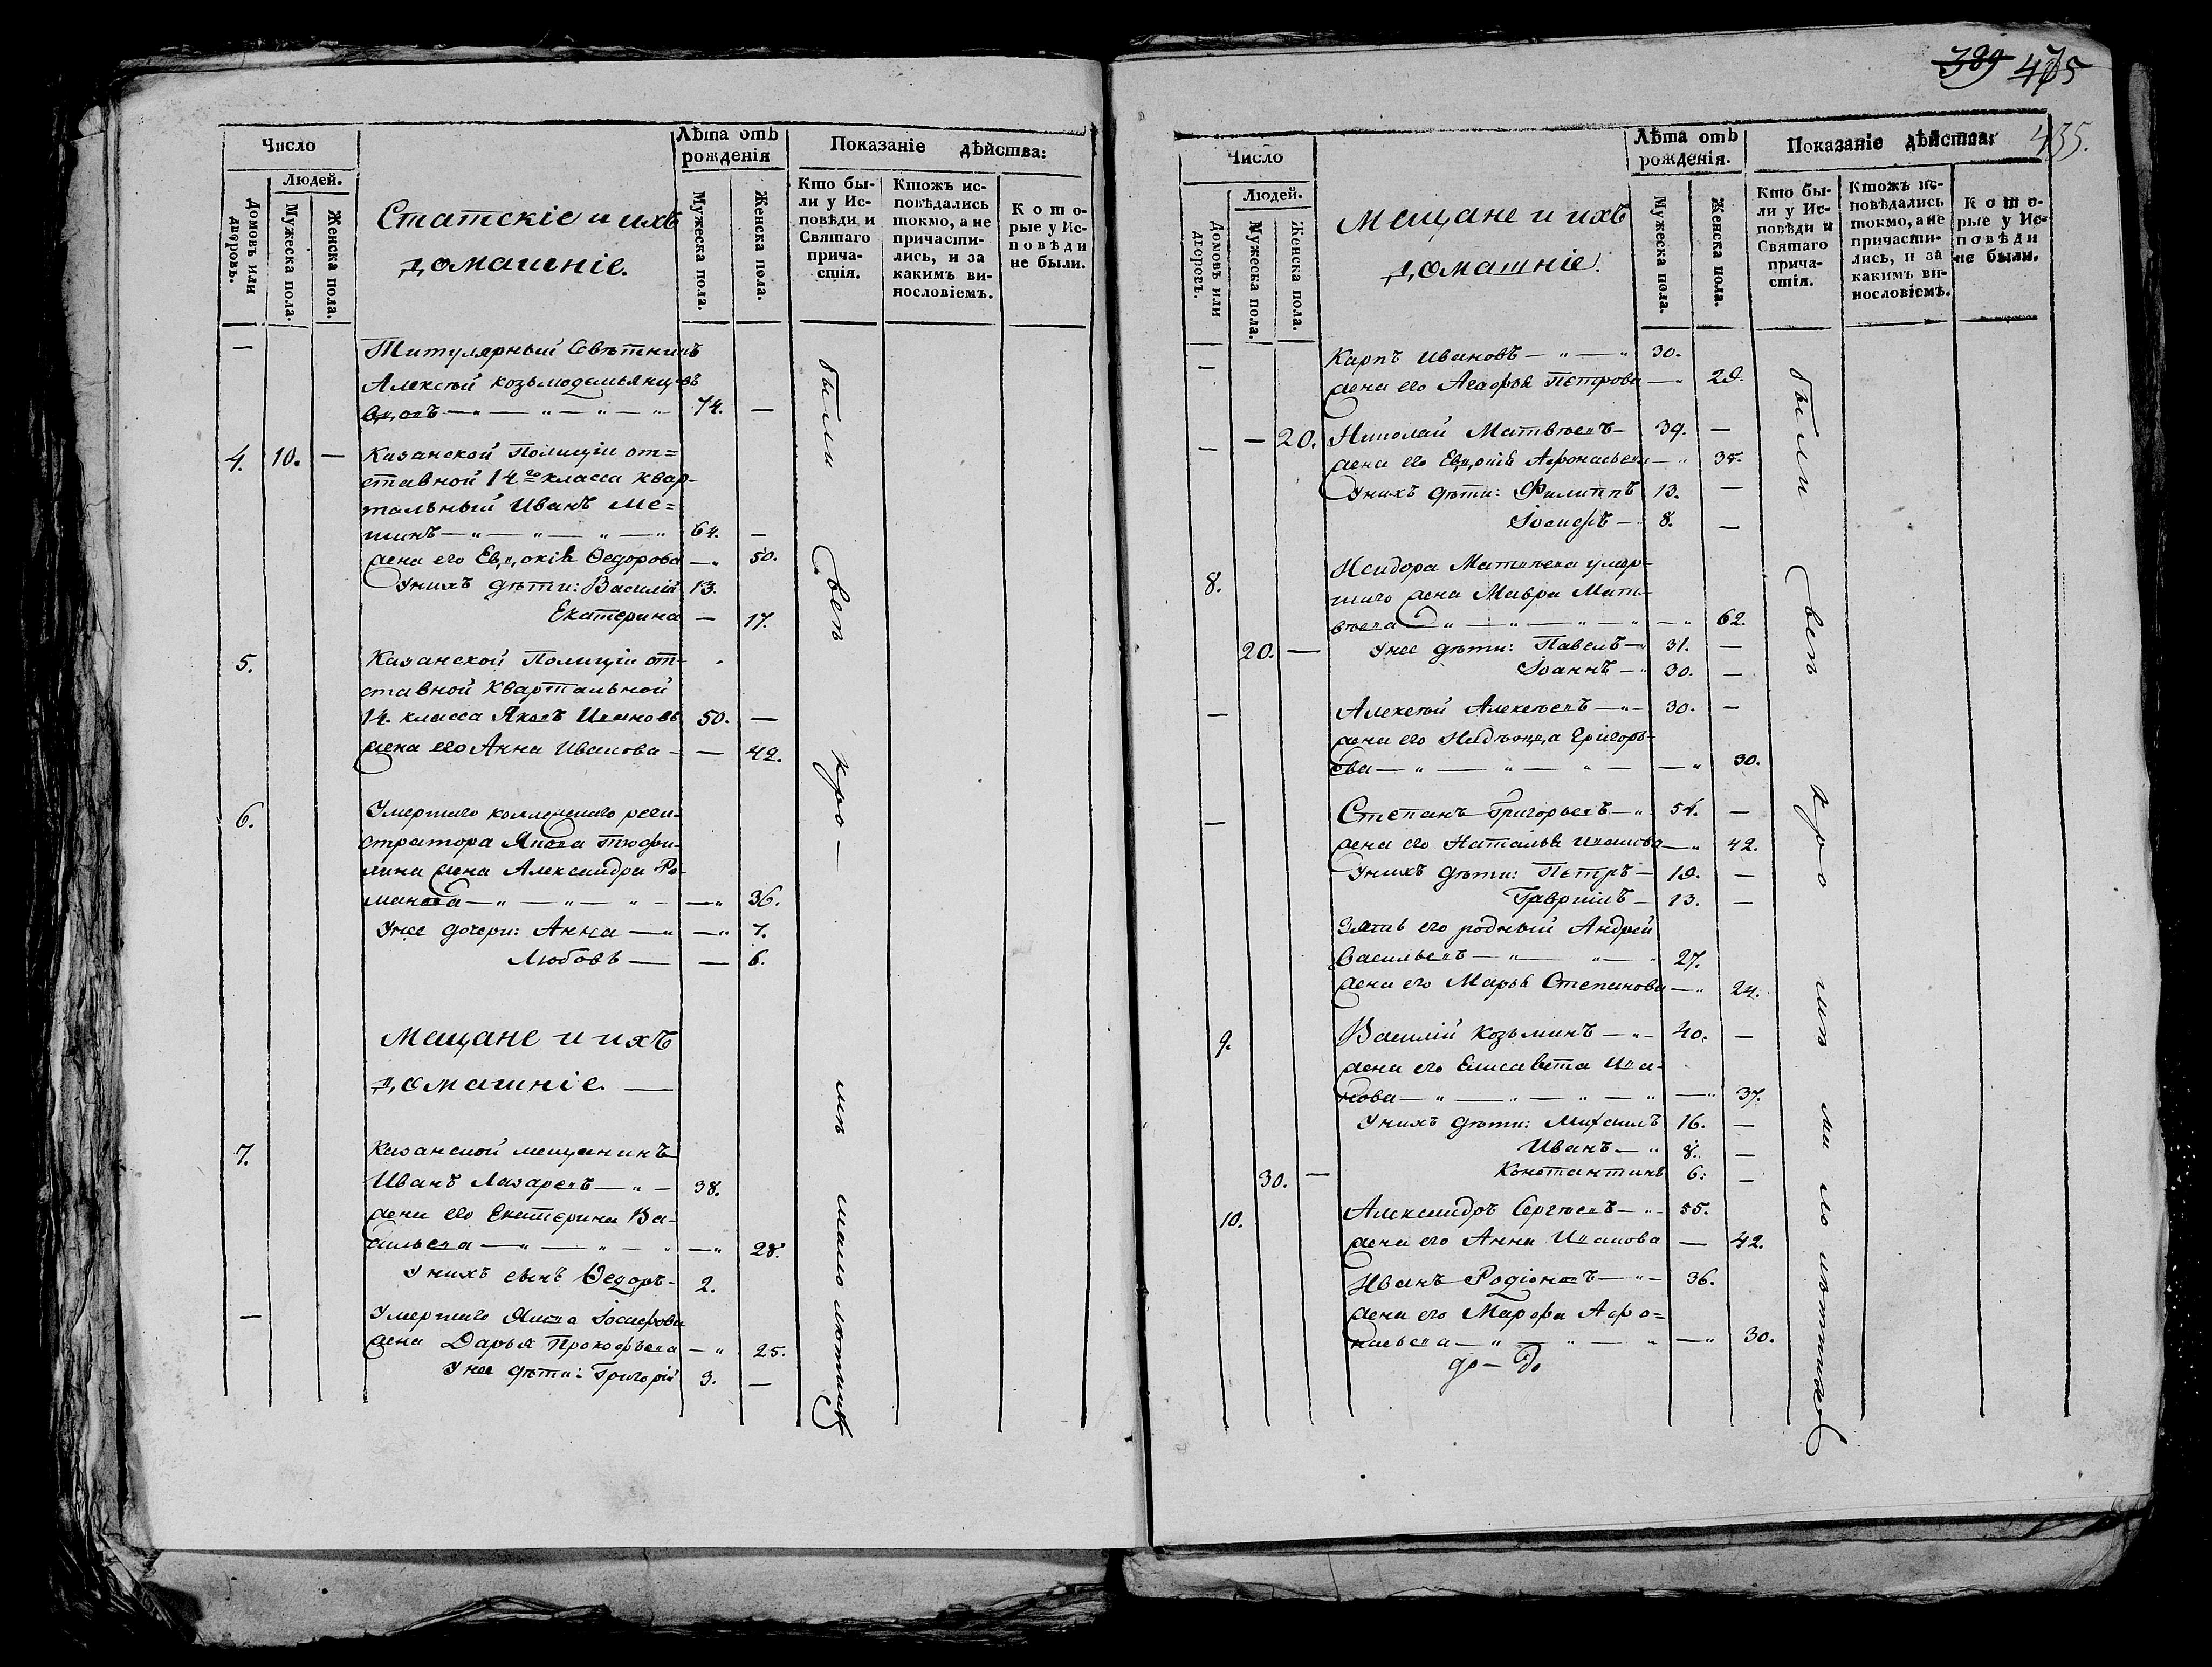 Число
Людей.
Домовъ или дворовъ.
Мужеска пола.
Женска пола.
Статскіе и ихъ
домашніе.
Лѣта отъ рожденія
Мужеска пола.
Женска пола.
Показаніе дѣйства:
Кто были у Исповѣди и Святаго причастія.
Ктожъ исповѣдались токмо, а не причастились, и за какимъ винословіемъ.
Которые у Исповѣди не были.
— Титулярный Совѣтникъ
Алексѣй Козьмодемьянцовъ
вдовъ — „ — „ — „ — „ 74. —
4. 10. — Казанской Полиціи от=
ставной 14го класса квар-
тальный Иванъ Ме=
шинъ — „ — „ — „ — „ 64. —
жена его Евдокія Ѳедорова — „ 50.
У нихъ дѣти: Василій 13.
Екатерина — 17.
5. Казанской Полиціи от-
ставной Квартальной
14. класса Яковъ Ивановъ 50. —
жена его Анна Иванова — — 42.
6. Умершаго коллежскаго реги-
стратора Якова
жена Александра Ро-
манова — „ — „ — „ — — „ 36.
У нее дочери: Анна — „ — „ 7.
Любовь — — 6.
Мещане и ихъ
домашніе. —
7. Казанской мещанинъ
Иванъ Лазаревъ — „ — 38.
жена его Екатерина Ва-
сильева — „ — „ — „ — „ 28.
У нихъ сынъ Ѳедоръ - 2.
— Умершаго Якова Іосифова
жена Дарья Прокофьева — „ 25.
У нее дѣти: Григорій 3. —
были Свеѣ кро — мѣ малолѣтнихъ
389 475
435.
Число
Людей.
Домовъ или дворовъ.
Мужеска пола.
Женска пола.
Мещане и ихъ
домашніе.
Лѣта отъ рожденія.
Мужеска пола.
Женска пола.
Показаніе дѣйства:
Кто были у Исповѣди и Святаго причастія.
Ктожъ исповѣдались токмо, а не причастились, и за какимъ винословіемъ.
Которые у Исповѣди не были.
— Карпъ Ивановъ — „ — „ 30.
жена его Агафья Петрова — „ 29.
— — 20. Николай Матвѣевъ — 39. —
жена его Евдокія Афонасьева — „ 35.
У нихъ дѣти: Филиппъ 13. —
Іосифъ — „ 8. —
8. Исидора Матвѣева умер-
шаго жена Мавра Мат-
вѣева — „ — „ — „ — „ — „ 62.
20. — У нее дѣти: Павелъ — „ 31. —
Іоаннъ — „ 30. —
— Алексѣй Алексѣевъ — „ - 30. —
жена его Надѣжда Григорь-
ева — „ — „ — „ — — „ 30.
— Степанъ Григорьевъ — „ 54. —
жена его Наталья Иванова — „ 42.
У нихъ дѣти: Петръ — 19. —
Гавріилъ — 13. —
Зять его родный Андрей
Васильевъ — „ — „ — „ 27.
жена его Марья Степанова — „ 24.
9. Василій Козьминъ — „ - 40. —
жена его Елисавета Ива-
нова — „ — „ — „ — „ — „ 37.
У нихъ дѣти: Михаилъ 16. —
Иванъ — „ 8. —
30. — Константинъ 6. —
10. Александръ Сергѣевъ — „ - 55.
жена его Анна Иванова — 42.
Иванъ Родіоновъ — „ — 36.
жена его Марфа Афо=
насьева — „ — „ — „ — „ 30.
были Свеѣ кро мѣ малолѣтнихъ